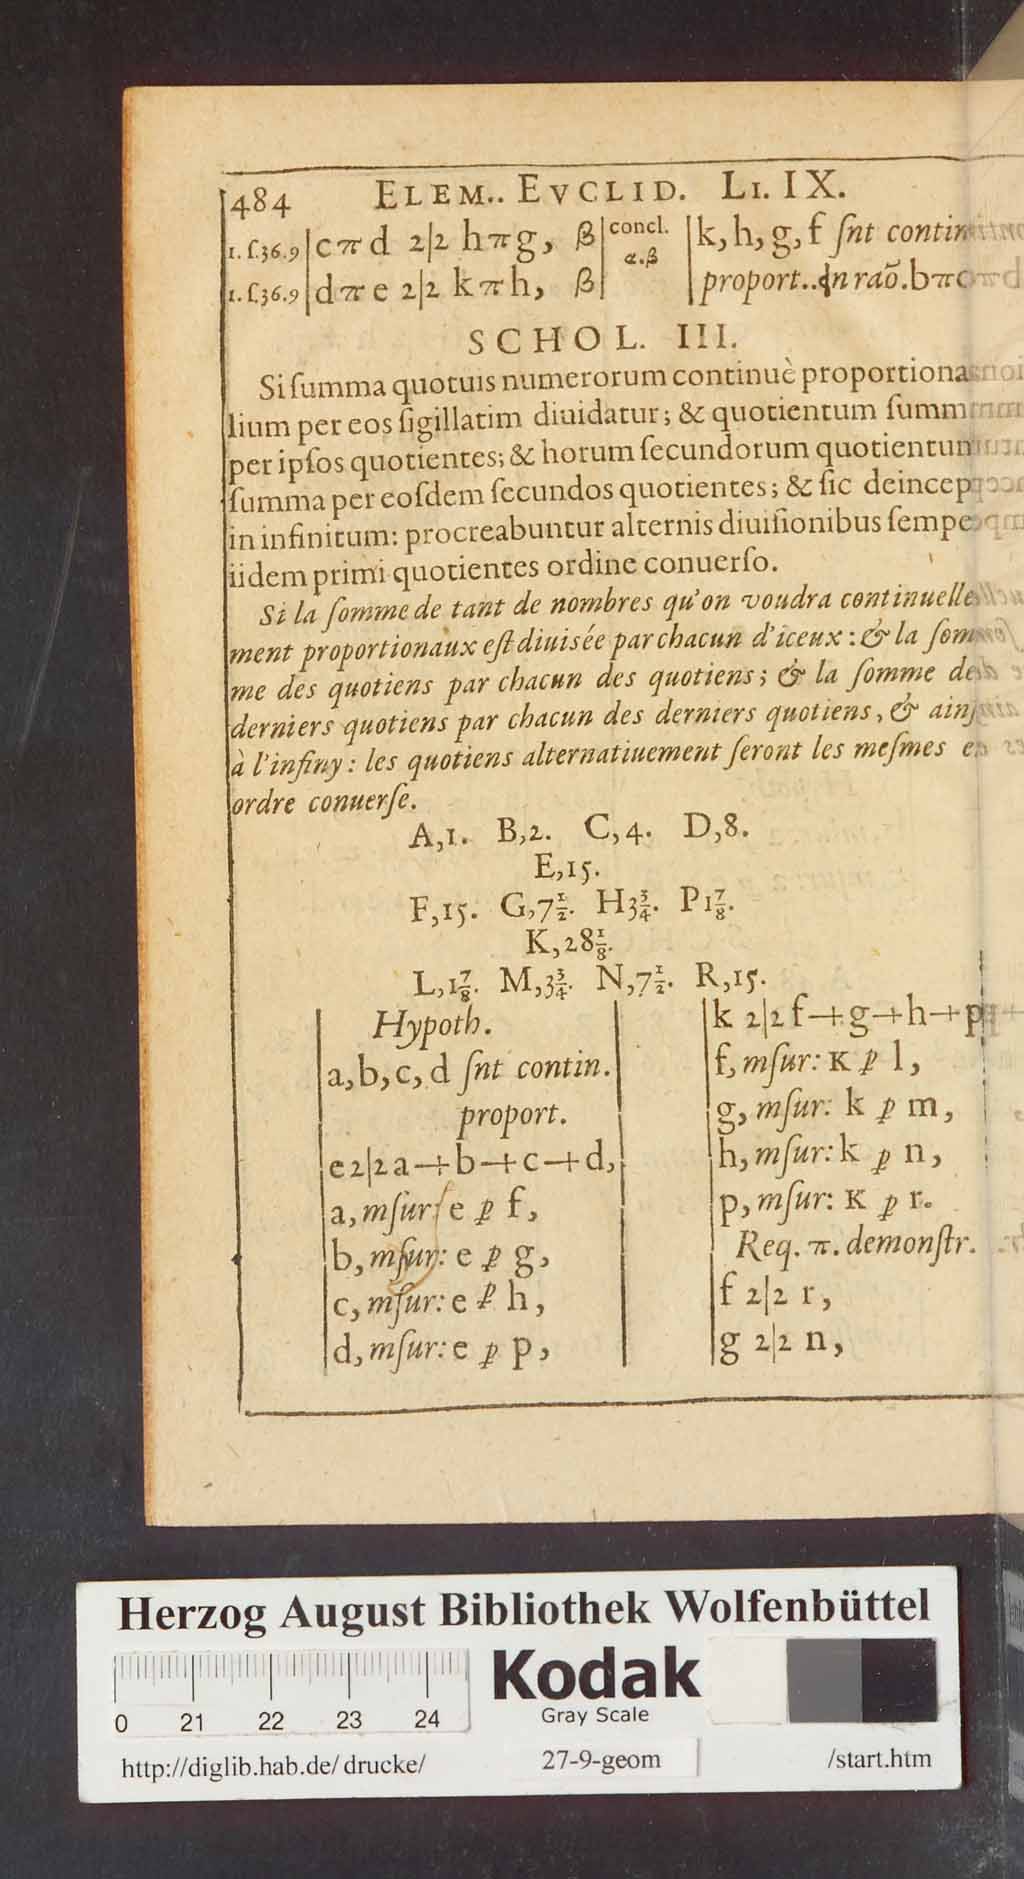 484 ELEM.. EVCLID. LI. IX.
1. ſ.36.9 | cπd 2|2 hπg, β | concl. | k, h, g, f ſnt contin
α.β
1. ſ.36.9 | dπe 2|2 kπh, β | proport.. in raõ. bπc
SCHOL. III.
Si ſumma quotuis numerorum continuè proportiona
lium per eos ſigillatim diuidatur; & quotientum ſumm
per ipſos quotientes; & horum ſecundorum quotientun
ſumma per eoſdem ſecundos quotientes; & ſic deincep
in infinitum: procreabuntur alternis diuiſionibus ſempe
iidem primi quotientes ordine conuerſo.
Si la ſomme de tant de nombres qu'on voudra continuelle
ment proportionaux eſt diuisée par chacun d'iceux: & la ſom
me des quotiens par chacun des quotiens; & la ſomme de
derniers quotiens par chacun des derniers quotiens, & ainſ
à l'infiny: les quotiens alternatiuement ſeront les meſmes e
ordre conuerſe.
A,1. B,2. C,4. D,8.
E,15.
F,15. G,7½. H3¾. P1⅞.
K,28⅛.
L,1⅞. M,3¾. N,7½. R,15.
Hypoth.
a, b, c, d ſnt contin.
proport.
e 2|2 a+b+c+d,
a, mſur: e ꝑ f,
b, mſur: e ꝑ g,
c, mſur: e ꝑ h,
d, mſur: e ꝑ p,
k 2|2 f+g+h+p
f, mſur: K ꝑ l,
g, mſur: k ꝑ m,
h, mſur: k ꝑ n,
p, mſur: K ꝑ r.
Req. π. demonſtr.
f 2|2 r,
g 2|2 n,
Herzog August Bibliothek Wolfenbüttel
Kodak
Gray Scale
0 21 22 23 24
http://diglib.hab.de/drucke/ 27-9-geom /start.htm